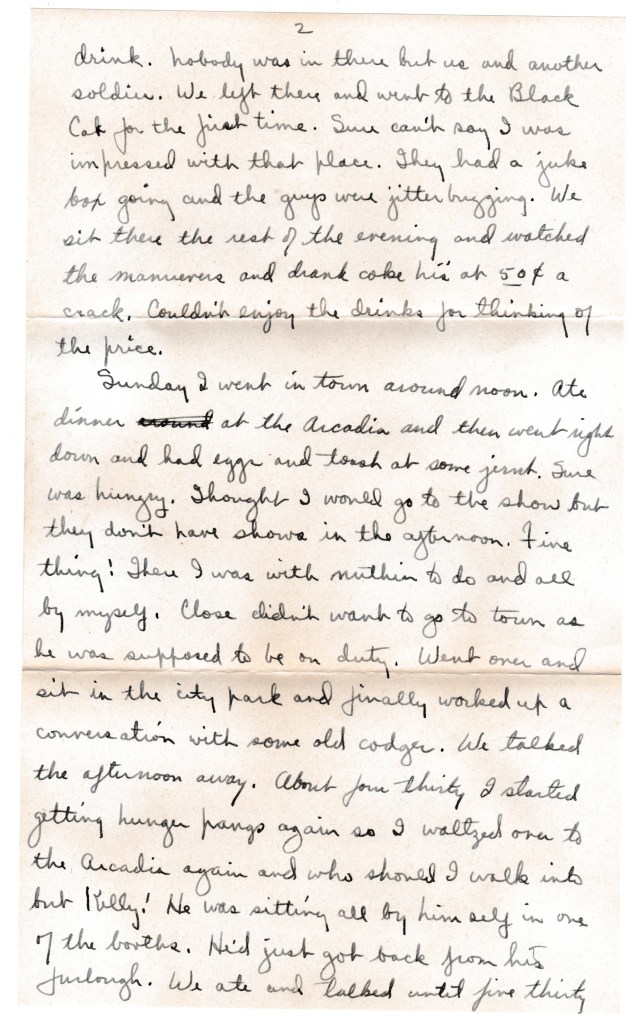 2
drink. Nobody was in there but us and another
soldier. We left there and went to the Black
Cat for the first time. Sure can't say I was
impressed with that place. They had a juke
box going and the guys were jitterbugging. We
sit there the rest of the evening and watched
the manuevers and drank coke his at 50¢ a
crack. Couldn't enjoy the drinks for thinking of
the price.
Sunday I went in town around noon. Ate
dinner around at the Arcadia and then went right
down and had eggs and toast at some jernt. Sure
was hungry. Thought I would go to the show but
they don't have shows in the afternoon. Fine
thing! There I was with nuthin to do and all
by myself. Close didn't want to go to town as
he was supposed to be on duty. Went over and
sit in the city park and finally worked up a
conversation with some old codger. We talked
the afternoon away. About four thirty I started
getting hunger pangs again so I waltzed over to
the Arcadia again and who should I walk into
but Kelly! He was sitting all by him self in one
of the booths. He'd just got back from his
furlough. We ate and talked until five thirty